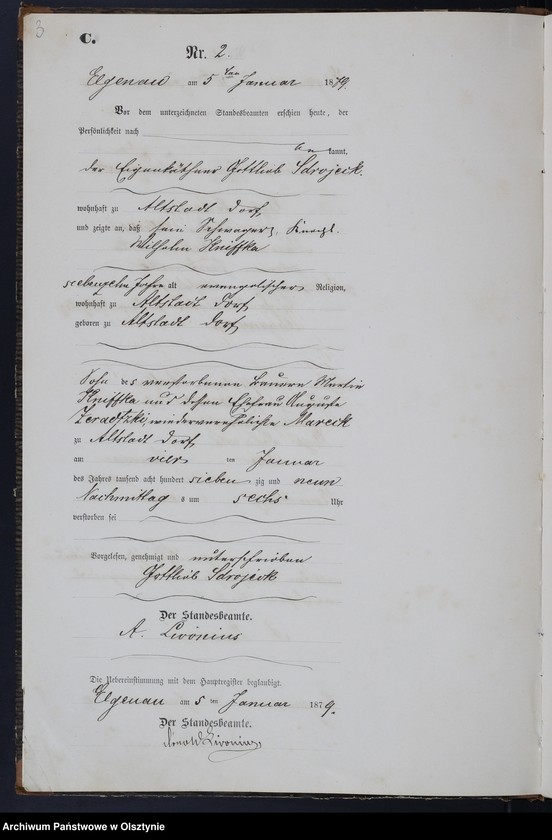 3
C.
Nr. 2.
Elgenau am 5ten Januar 1879.
Vor dem unterzeichneten Standesbeamten erschien heute, der
Persönlichkeit nach
kannt,
der Eigenkäthner Gottlieb Sdrojeck.
wohnhaft zu Altstadt Dorf
und zeigte an, daß sein Schwager, Knecht
Wilhelm Kniffka
siebenzehn Jahre alt evangelischer Religion,
wohnhaft zu Altstadt Dorf
geboren zu Altstadt Dorf
Sohn des verstorbenen Bauern Martin
Kniffka und dessen Ehefrau Auguste
wiederverehelichte Marcik
zu Altstadt Dorf
am vier ten Januar
des Jahres tausend acht hundert sieben zig und neun
Nachmittag s um sechs Uhr
verstorben sei
Vorgelesen, genehmigt und unterschrieben
Gottlieb Sdrojeck
Der Standesbeamte.
A. Livonius
Die Uebereinstimmung mit dem Hauptregister beglaubigt.
Elgenau am 5 ten Januar 1879.
Der Standesbeamte.
Livonius
Archiwum Państwowe w Olsztynie